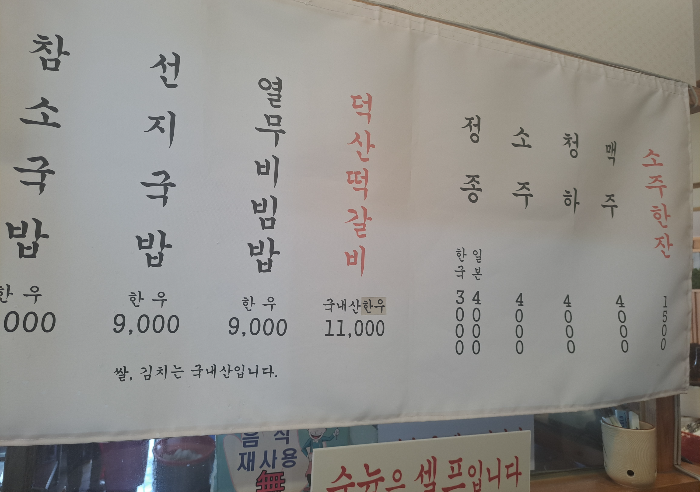 참소국밥
한우
000
선지국밥
한우
9,000
열무비빔밥
한우
9,000
덕산떡갈비
국내산한우
11,000
정종
한국 일본
3000 4000
소주
4000
청하
4000
맥주
4000
소주한잔
1500
쌀, 김치는 국내산입니다.
음식
재사용
無
수능은 셀프입니다